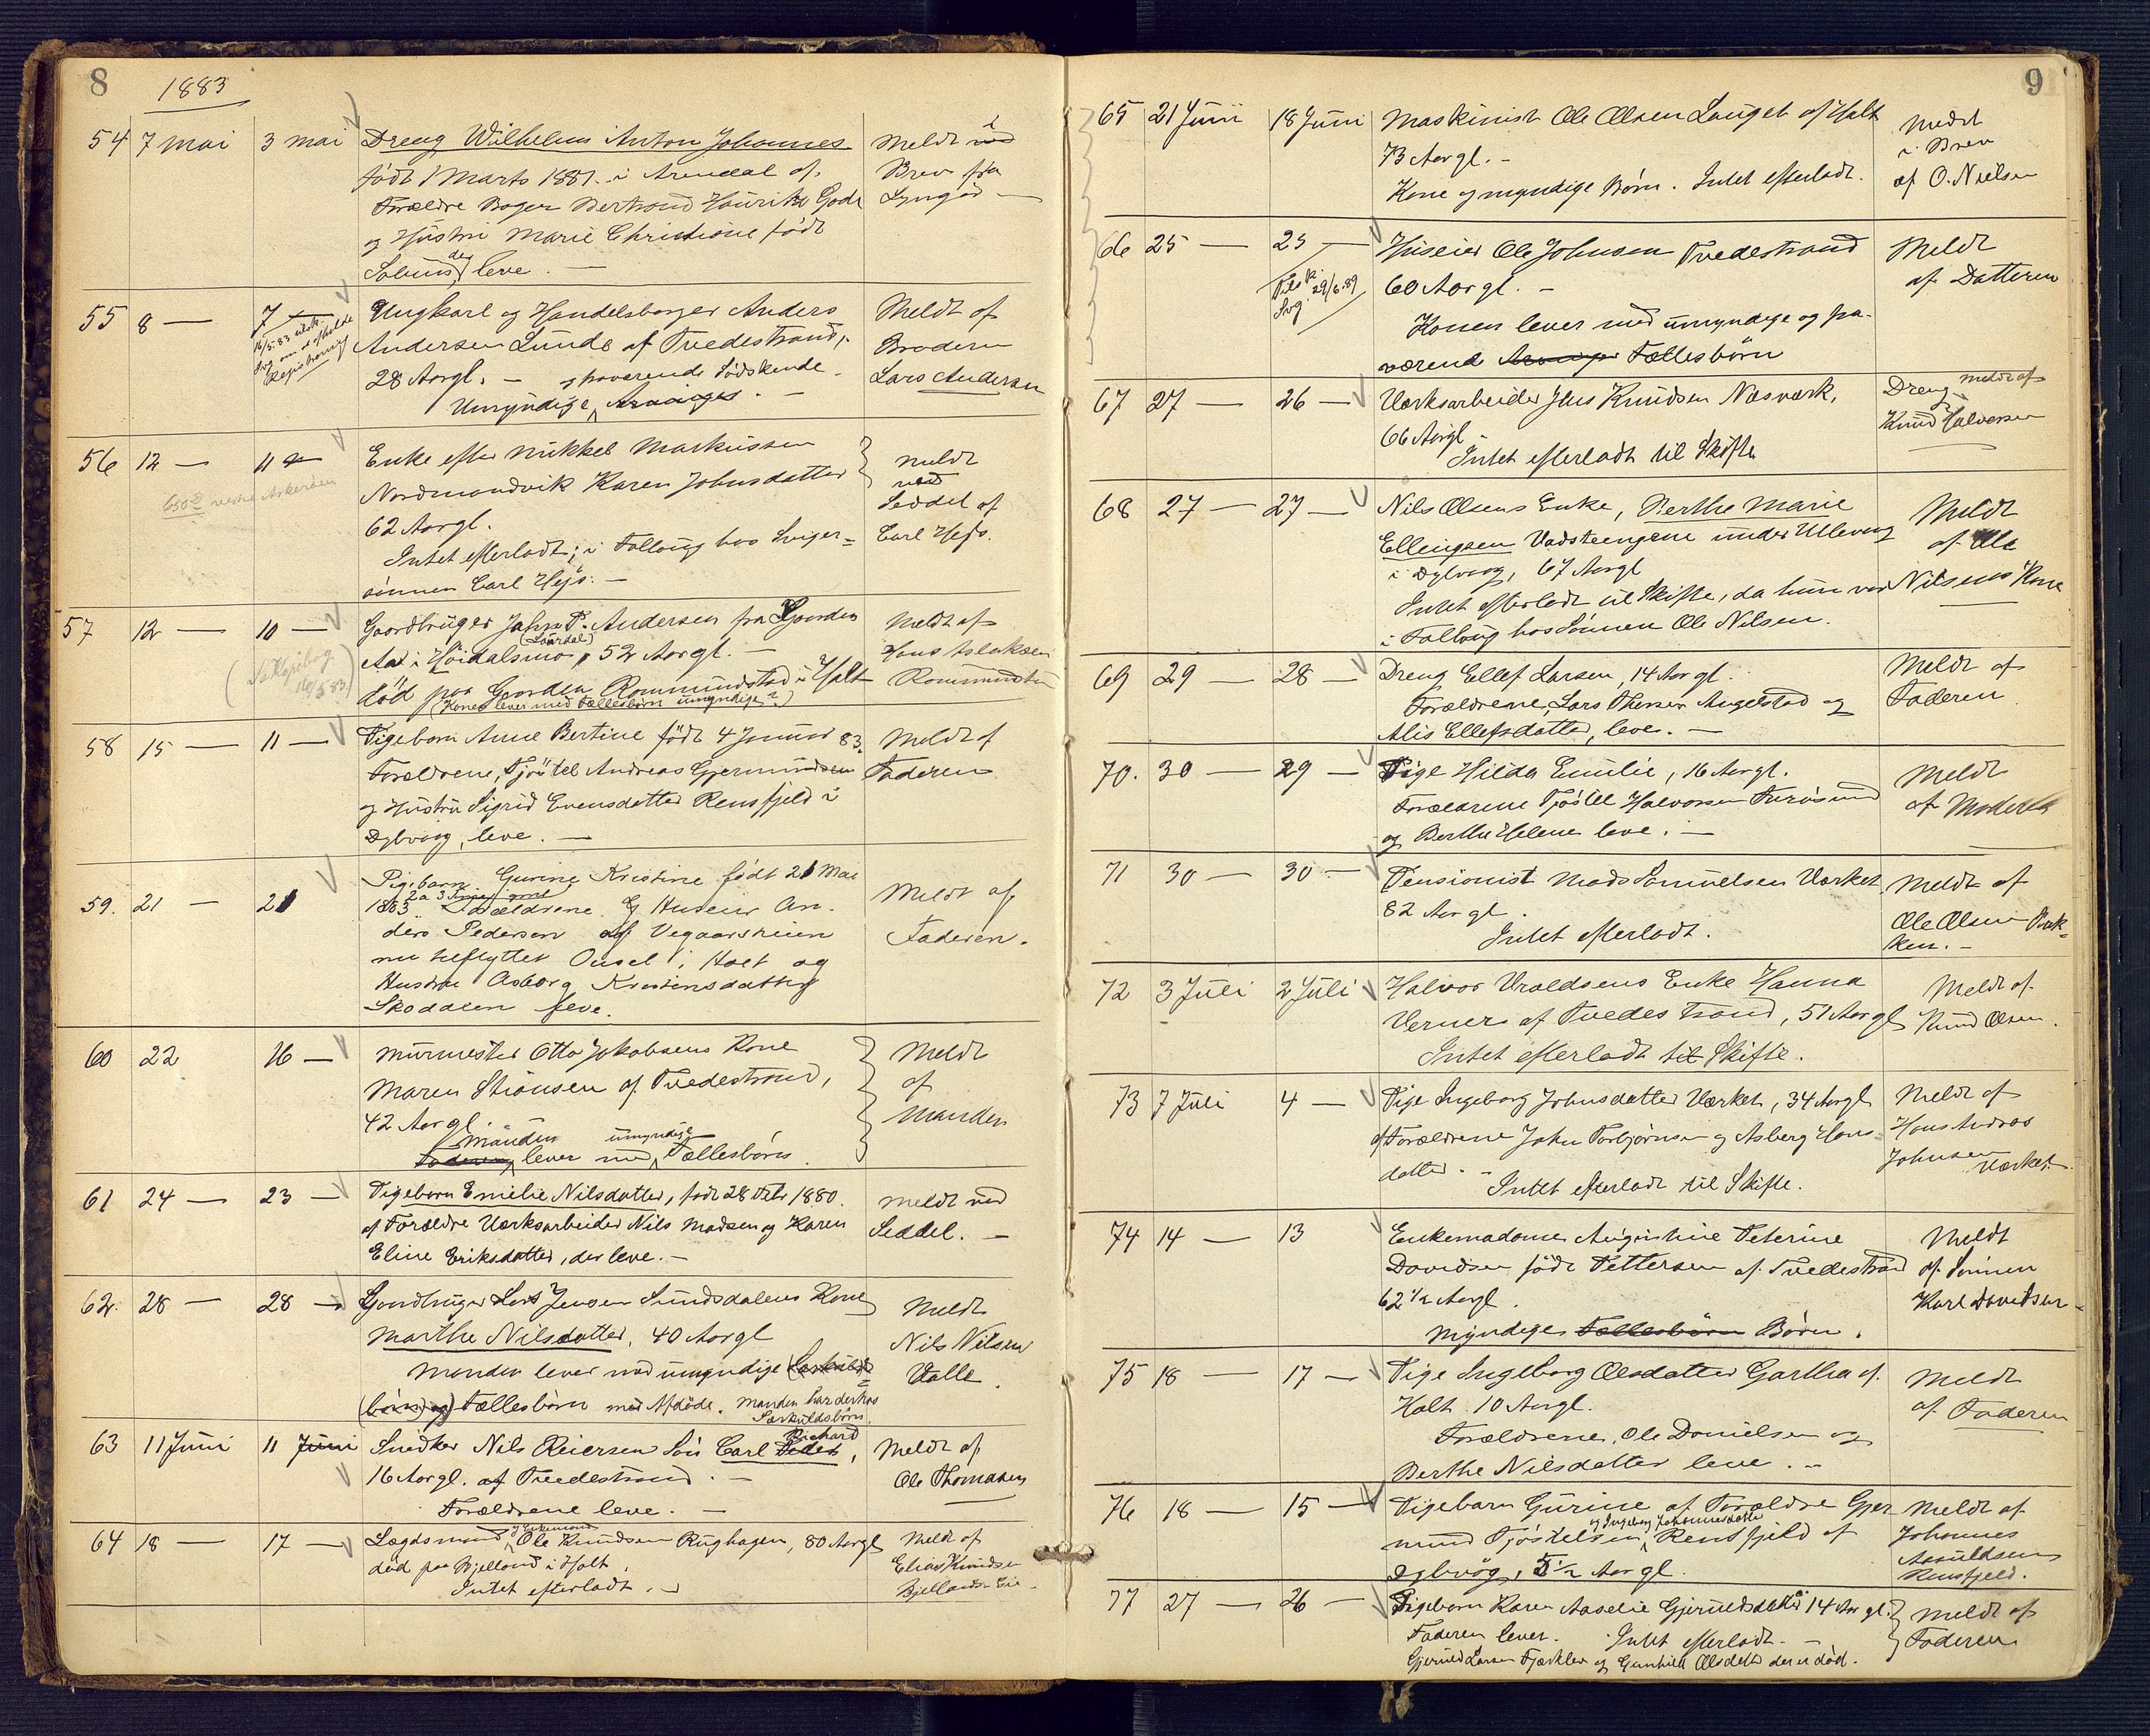 8
1883
54 7 Mai 3 Mai Dreng Wilhelm Anton Johannes Meldt i
født 1 Marts 1881 i Arendal af Brev fra
Forældre Bager Bertrand Hinrik Lyngør
og Hustru Marie Christine født
der leve. —
55 8 — 7 — Ungkarl og Handelsborger Anders Meldt af
Andersen Lunde af Tvedestrand, Broderen
28 Aargl. — og fraværende Sødskende. Lars Andersen
Umyndige Arvinger. —
16/5.83
Registrering
56 12 — 11 — Enke efter Mikkel Markussen Meldt
Nordmandvik Karen Johnsdatter ved
62 Aargl. Seddel af
Intet efterladt; i Follaug hos Sviger= Carl
sønnen Carl
57 12 — 10 — Gaardbruger John P. Andersen fra Gaarden Meldt af
Aa i Høidalsmo (Laurdal) 52 Aargl. — Hans Aslaksen
død paa Gaarden Rommundstad i Holt
(Konen lever med Fællesbørn umyndige?)
16/5 83
58 15 — 11 — Pigebarn Anne Bertine født 4 Januar 83. Meldt af
Forældrene, Tjøstel Andreas Gjermundsen Faderen
og Hustru Sigrid Evensdatter Rensfjeld i
Dybvaag, leve. —
59. 21 — 21 Pigebarn Gurine Kristine født 21 Mai Meldt af
1883 2 a 3 Forældrene Huseier An- Faderen.
ders Pedersen af Vegaarsheien
nu tilflyttet Ousel i Holt og
Hustru Asborg Kristensdatter
Skoddalen leve.
60 22 16 — Murmester Otto Jakobsens Kone Meldt
Maren Sørensen af Tvedestrand, af
42 Aargl. Manden
Manden umyndige
Faderen lever med Fællesbørn.
61 24 — 23 — Pigebarn Emilie Nilsdatter, født 28 1880. Meldt ved
af Forældre Værksarbeider Nils Madsen og Karen Seddel. —
Eline Eriksdatter, der leve. —
62. 28 — 28 — Gaardbruger Lars Jensen Sundsdalens Kone Meldt
Marthe Nilsdatter, 40 Aargl Nils Nilsen
Manden lever med umyndige (Særkulds= Valle.
børn og) Fællesbørn med Afdøde. Manden har derhos
Særkuldsbørn.
63 11 Juni 11 Juni Snedker Nils Reiersens Søn Carl Richard, Meldt af
16 Aargl. af Tvedestrand. — Ole Thomassen
Forældrene leve. —
64 18 — 17 — Lægdsmand og Enkemand Ole Knudsen Rughagen, 80 Aargl Meldt af
død paa Bjelland i Holt. Elias Knudsen
Intet efterladt. — Bjellands Eie
9
65 21 Juni 18 Juni Maskinist Ole Olsen Lauget af Holt Meldt
73 Aargl. — i Brev
Kone og myndige Børn. Intet efterladt. af O. Nielsen
66 25 — 23 — Huseier Ole Johnsen Tvedestrand Meldt
60 Aargl. — af Datteren
Konen lever med umyndige og fra-
værende Arvinger Fællesbørn
29/6.89
67 27 — 26 — Værksarbeider Jens Knudsen Næsværk, Meldt af
66 Aargl Dreng
Intet efterladt til Skifte Knud Halvorsen
68 27 — 27 — Nils Olsens Enke, Berthe Marie Meldt
Ellingsen Vadsteengene under Ulevaag af Ole
i Dybvaag, 67 Aargl Nilsens Kone
Intet efterladt til Skifte, da hun var
i Follaug hos Sønnen Ole Nilsen.
69 29 — 28 — Dreng Ellef Larsen, 14 Aargl. Meldt af
Forældrene, Lars Thersen Angelstad og Faderen
Alis Ellefsdatter, lever. —
70. 30 — 29 — Pige Hilda Emilie, 16 Aargl. Meldt
Forældrene Tjøstel Halvorsen Furøsund af Moderen
og Berthe Helene leve. —
71 30 — 30 — Pensionist Mads Samuelsen Værket Meldt af
82 Aargl. Ole Olsen
Intet efterladt.
72 3 Juli 2 Juli Halvor Vraldsens Enke Hanna Meldt af
Verner af Tvedestrand, 51 Aargl Knud Olsen.
Intet efterladt til Skifte.
73 7 Juli 4 — Pige Ingeborg Johnsdatter Værket, 34 Aargl Meldt af
af Forældrene John Torbjørnsen og Asberg Hans- Hans Andreas
datter. — Johnsen Værket.
Intet efterladt til Skifte.
74 14 — 13 Enkemadame Augustine Peterine Meldt
Davidsen født Pettersen af Tvedestrand af Sønnen
62 1/2 Aargl. Karl Davidsen
Myndige Fællesbørn Børn.
75 18 — 17 — Pige Ingeborg Olsdatter Gartha af Meldt
Holt. 10 Aargl. af Faderen
Forældrene, Ole Danielsen og
Berthe Nilsdatter leve. —
76 18 — 15 — Pigebarn Gurine af Forældre Gjer- Meldt af
mund Tjøstelsen og Ingeborg Johannesdatter Rensfjeld af Johannes
Dybvåg, 5 1/2 Aargl. Aanuldsen
Rensfjeld.
77 27 — 26 — Pigebarn Karen Aaselie Gjeruldsdatter 14 Aargl. Meldt af
Faderen lever. Intet efterladt. — Faderen
Gjeruld Larsen og Gunhild Olsdatter der er død.